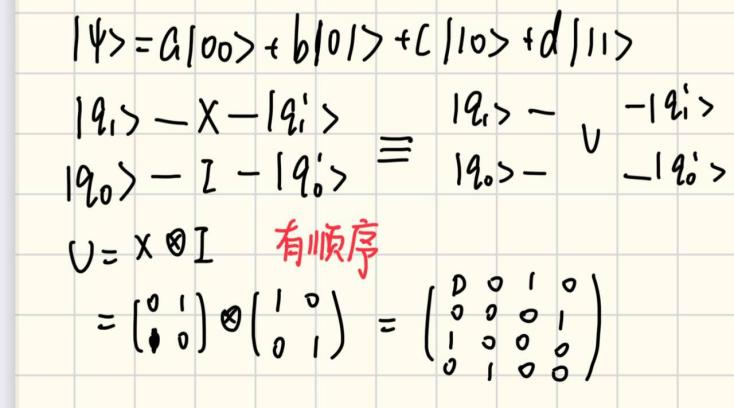 |ψ> = a|00> + b|01> + c|10> + d|11>
|q₁> — X — |q₁'> ≡ |q₁> — U — |q₁'>
|q₀> — I — |q₀'> |q₀> — — |q₀'>
U = X ⊗ I 有顺序
= (0 1; 1 0) ⊗ (1 0; 0 1) = (0 0 1 0; 0 0 0 1; 1 0 0 0; 0 1 0 0)